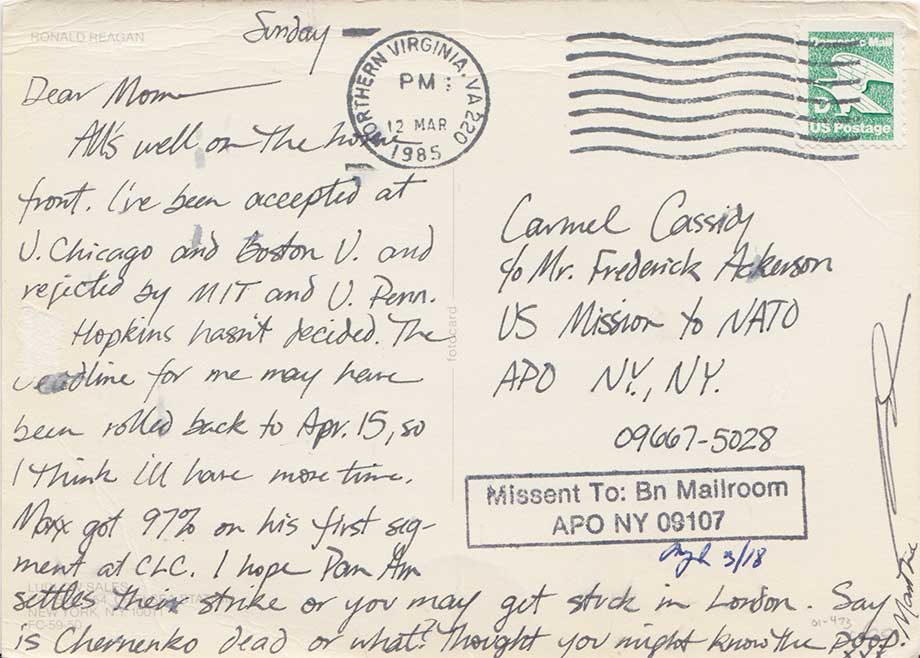 RONALD REAGAN
Sunday
Dear Mom
All's well on the home
front. I've been accepted at
U. Chicago and Boston U. and
rejected by MIT and U. Penn.
Hopkins hasn't decided. The
deadline for me may have
been rolled back to Apr. 15, so
I think i'll have more time.
Maxx got 97% on his first seg-
ment at CLC. I hope Pan Am
settles their strike or you may get stuck in London. Say
is Chernenko dead or what? Thought you might know the poop.
LUDLOW SALES
NEW YORK, N.Y. 1001
FC-59-50
fotocard
NORTHERN VIRGINIA, VA 220
PM
12 MAR
1985
D
US Postage
Carmel Cassidy
c/o Mr. Frederick Ackerson
US Mission to NATO
APO N.Y., N.Y.
09667-5028
Missent To: Bn Mailroom
APO NY 09107
3/18
01-473